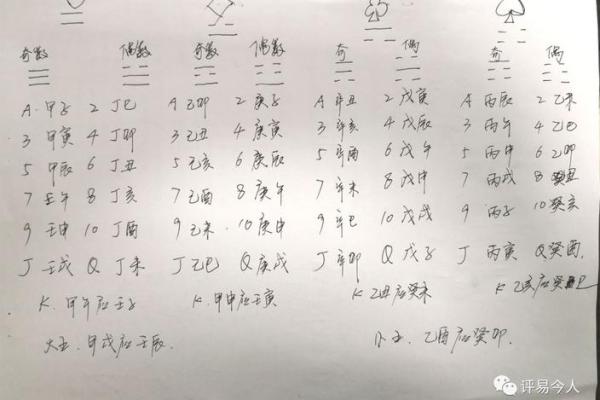 奇数 偶数 奇数 偶数 奇 偶 奇 偶
A 甲子 2 丁巳 A 乙卯 2 庚子 A 辛丑 2 戊寅 A 丙辰 2 乙未
3 甲寅 4 丁卯 3 乙丑 4 庚寅 3 辛亥 4 戊辰 3 丙午 4 乙巳
5 甲辰 6 丁丑 5 乙亥 6 庚辰 5 辛酉 6 戊午 5 丙申 6 乙卯
7 壬午 8 丁亥 7 乙酉 8 庚午 7 辛未 8 戊申 7 丙戌 8 癸丑
9 壬申 10 丁酉 9 乙未 10 庚申 9 辛巳 10 戊戌 9 丙子 10 癸亥
J 壬戌 Q 丁未 J 乙巳 Q 庚戌 J 辛卯 Q 戊子 J 丙寅 Q 癸酉.
K. 甲午应壬子 K. 甲申应壬寅 K 乙丑应癸未 K 乙亥应癸巳
大王. 甲戌应壬辰. 小王. 乙酉应癸卯.
评易今人